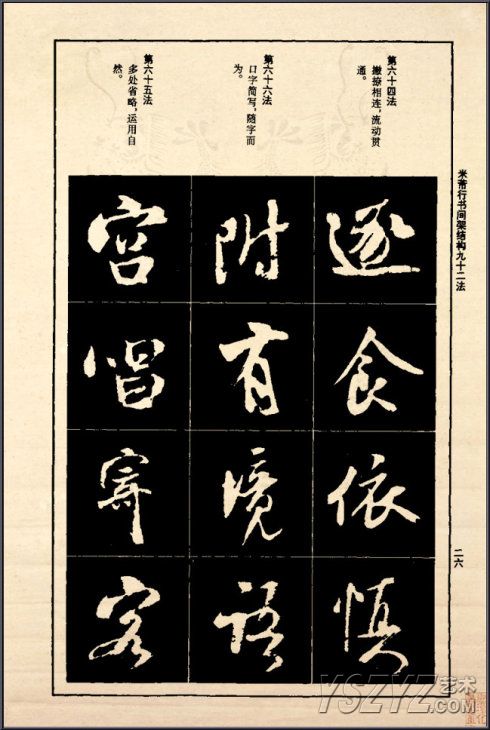 米芾行书间架结构九十二法
二六
第六十四法
撇捺相连，流动贯
通。
第六十六法
口字简写，随字而
为。
第六十五法
多处省略，运用自
然。
逐食依慎
附有境语
宫唱寄客
YSZYZ艺术
.COM